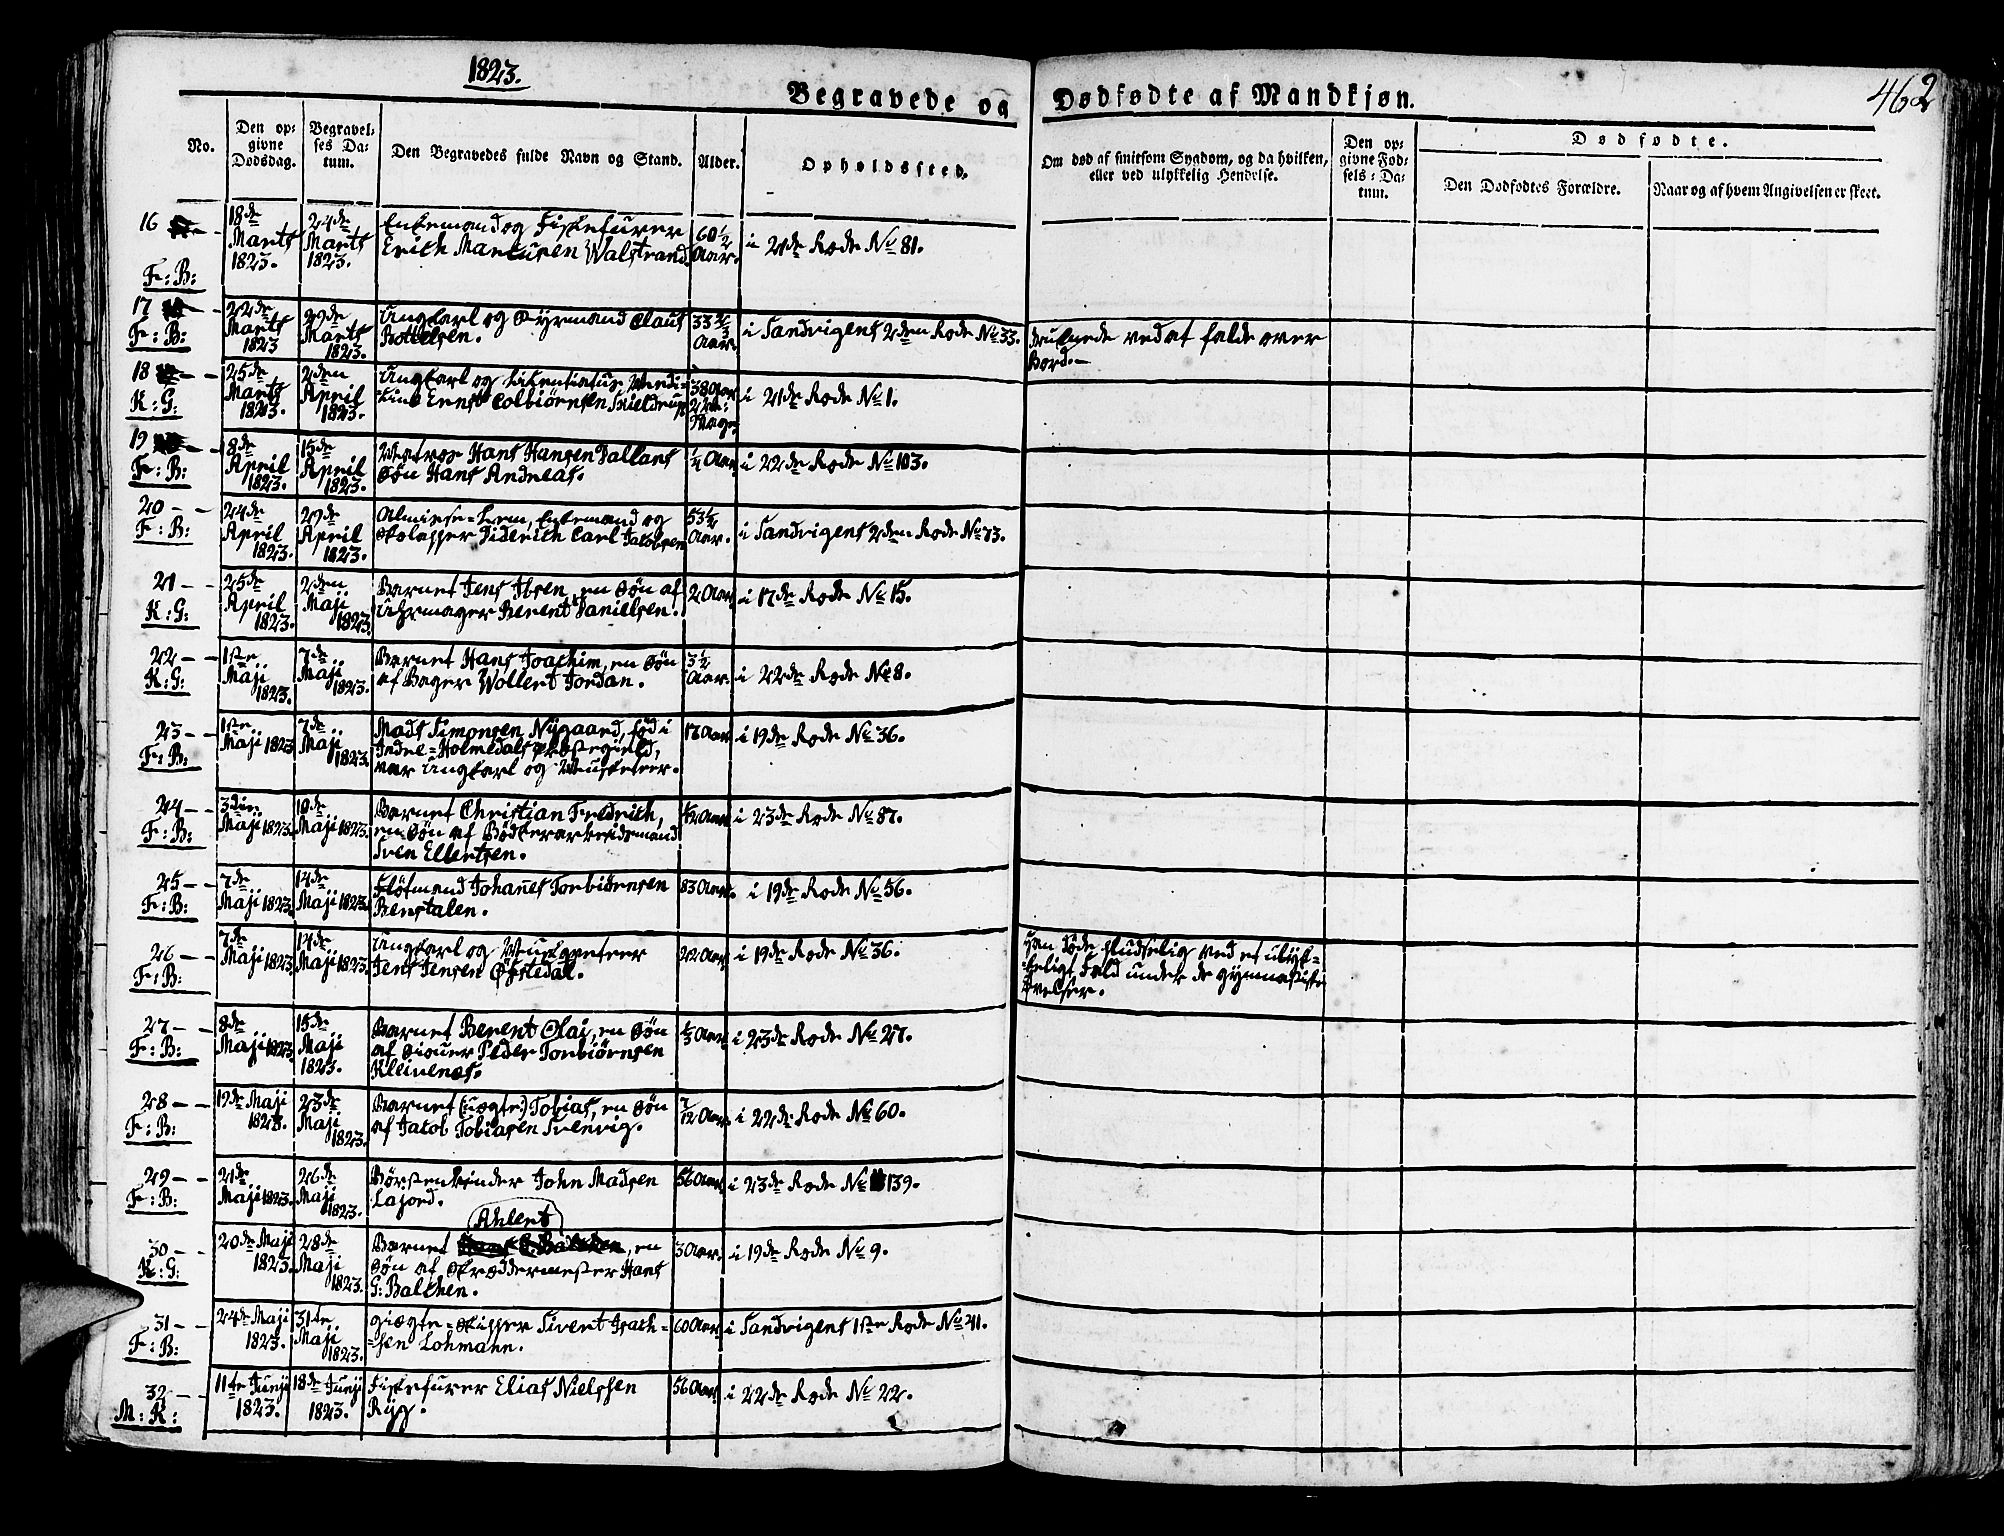 1823.
462
Begravede og Dødfødte af Mandkjøn.
No.
Den op-
givne
Dødsdag.
Begravel-
ses Da-
tum.
Den Begravedes fulde Navn og Stand.
Alder.
Opholdssted.
Om død af smitsom Sygdom, og da hvilken,
eller ved ulykkelig Hendelse.
Den op-
givne Fød-
sels-Da-
tum.
Dødfødte.
Den Dødfødtes Forældre.
Naar og af hvem Angivelsen er skeet.
16 F: B: 18de Marts 1823. 24de Marts 1823. Enkemand og Fiskefurer
Erich Marcusen Walstrand. 60 1/2 Aar. i 21de Rode No 81.
17 F: B: 22de Marts 1823 29de Marts 1823. Ungkarl og Styrmand Claus
Bottelsen. 33 Aar. i Sandvigens 2den Rode No 33. Druknede ved at falde over
Bord.
18 K: G: 25de Marts 1823. 2den April 1823. Ungkarl og Licentiatus Medi-
cinæ Ernst Colbiørnsen Skieldrup 38 Aar i 21de Rode No 1.
19 F: B: 8de April 1823. 15de April 1823. Matros Hans Hansen Dallans
Søn Hans Andreas. 1/4 Aar i 22de Rode No 103.
20 F: B: 24de April 1823. 29de April 1823. Almisse-Lem, Enkemand og
Stolapper Diderich Carl Jacobsen 53 1/2 Aar. i Sandvigens 2den Rode No 73.
21 K: G: 25de April 1823. 2den Maji 1823. Barnet Jens Ibsen, en Søn af
Uhrmager Berent Danielsen. 2 Aar i 17de Rode No 15.
22 K: G: 1ste Maji 1823. 7de Maji 1823. Barnet Hans Joachim, en Søn
af Bager Wollert Jordan. 3 1/2 Aar. i 22de Rode No 8.
23 F: B: 1ste Maji 1823 7de Maji 1823. Mads Simonsen Nÿgaard, fød i
Indre-Holmedals Præstegield,
var Ungkarl og Musketeer. 17 Aar i 19de Rode No 36.
24 F: B: 3die Maji 1823. 10de Maji 1823. Barnet Christian Fredrich,
en Søn af Bødkerarbeidsmand
Sven Ellertsen. 1/2 Aar i 23de Rode No 87.
25 F: B: 7de Maji 1823. 14de Maji 1823. Fløtmand Johanes Torbiørnsen
Benstalen. 83 Aar. i 19de Rode No 56.
26 F: B: 7de Maji 1823 14de Maji 1823 Ungkarl og Musqveteer
Jens Jensen Opstedal. 22 Aar i 19de Rode No 36. Han døde pludselig ved et ulyk-
keligt Fald under de gymnastiske
Øvelser.
27 F: B: 8de Maji 1823 15de Maji 1823. Barnet Berent Olai, en Søn
af Peder Torbiørnsen
Kleivenæs. 1/3 Aar i 23de Rode No 27.
28 F: B: 19de Maji 1823. 23de Maji 1823. Barnet (uægte) Tobias, en Søn
af Jacob Tobiasen Svenvig. 7/12 Aar i 22de Rode No 60.
29 F: B: 21de Maji 1823. 26de Maji 1823. Børstenbinder John Madsen
Lajord. 56 Aar i 23de Rode No 139.
Ahlert
30 K: G: 20de Maji 1823. 28de Maji 1823. Barnet , en
Søn af Skræddermester Hans
G: Balchen. 3 Aar. i 19de Rode No 9.
31 F: B: 24de Maji 1823. 31te Maji 1823. giægte-Skipper Sivert Isach-
sen Lohmann. 60 Aar. i Sandvigens 1ste Rode No 41.
32 M: K: 11te Junji 1823. 18de Junji 1823. Fiskefurer Elias Nielssen
Ryg. 56 Aar i 22de Rode No 22.